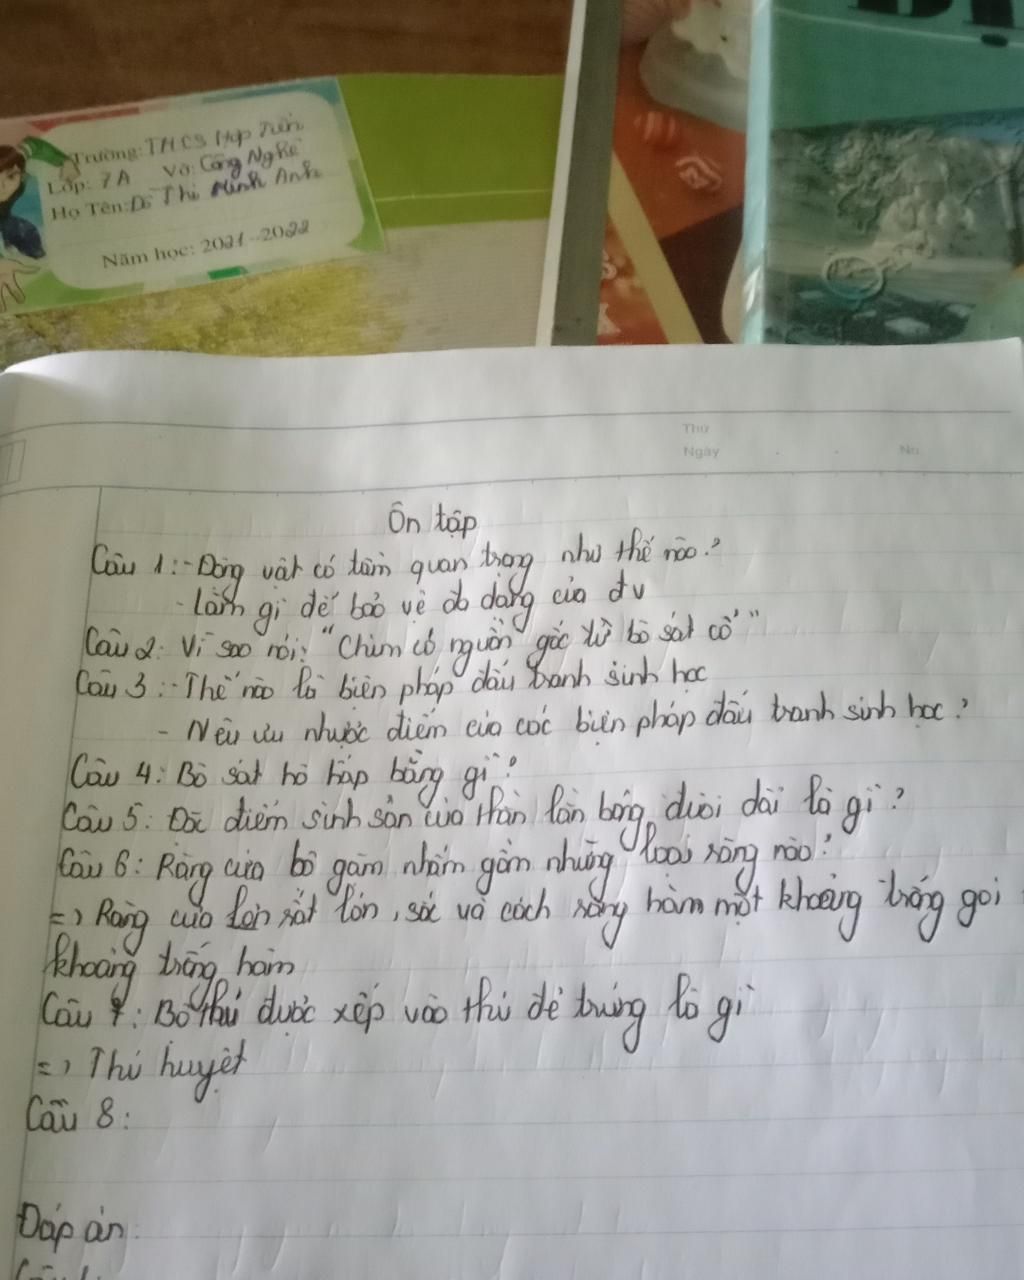 Trường: THCS Hợp Tiến
Lớp: 7A Vở: Công Nghệ
Họ Tên: Đỗ Thị Minh Anh
Năm học: 2021-2022
Thứ
Ngày No.
Ôn tập
Câu 1: - Động vật có tầm quan trọng như thế nào?
- Làm gì để bảo vệ đa dạng của đv
Câu 2: Vì sao nói: "Chim có nguồn gốc từ bò sát cổ"
Câu 3: - Thế nào là biện pháp đấu tranh sinh học
- Nêu ưu nhược điểm của các biện pháp đấu tranh sinh học?
Câu 4: Bò sát hô hấp bằng gì?
Câu 5: Đặc điểm sinh sản của thằn lằn bóng đuôi dài là gì?
Câu 6: Răng của bộ gặm nhấm gồm những loại răng nào?
=> Răng cửa lớn rất lớn, sắc và cách răng hàm một khoảng trống gọi
khoảng trống hàm
Câu 7: Bộ thú được xếp vào thú đẻ trứng là gì
=> Thú huyệt
Câu 8:
Đáp án: